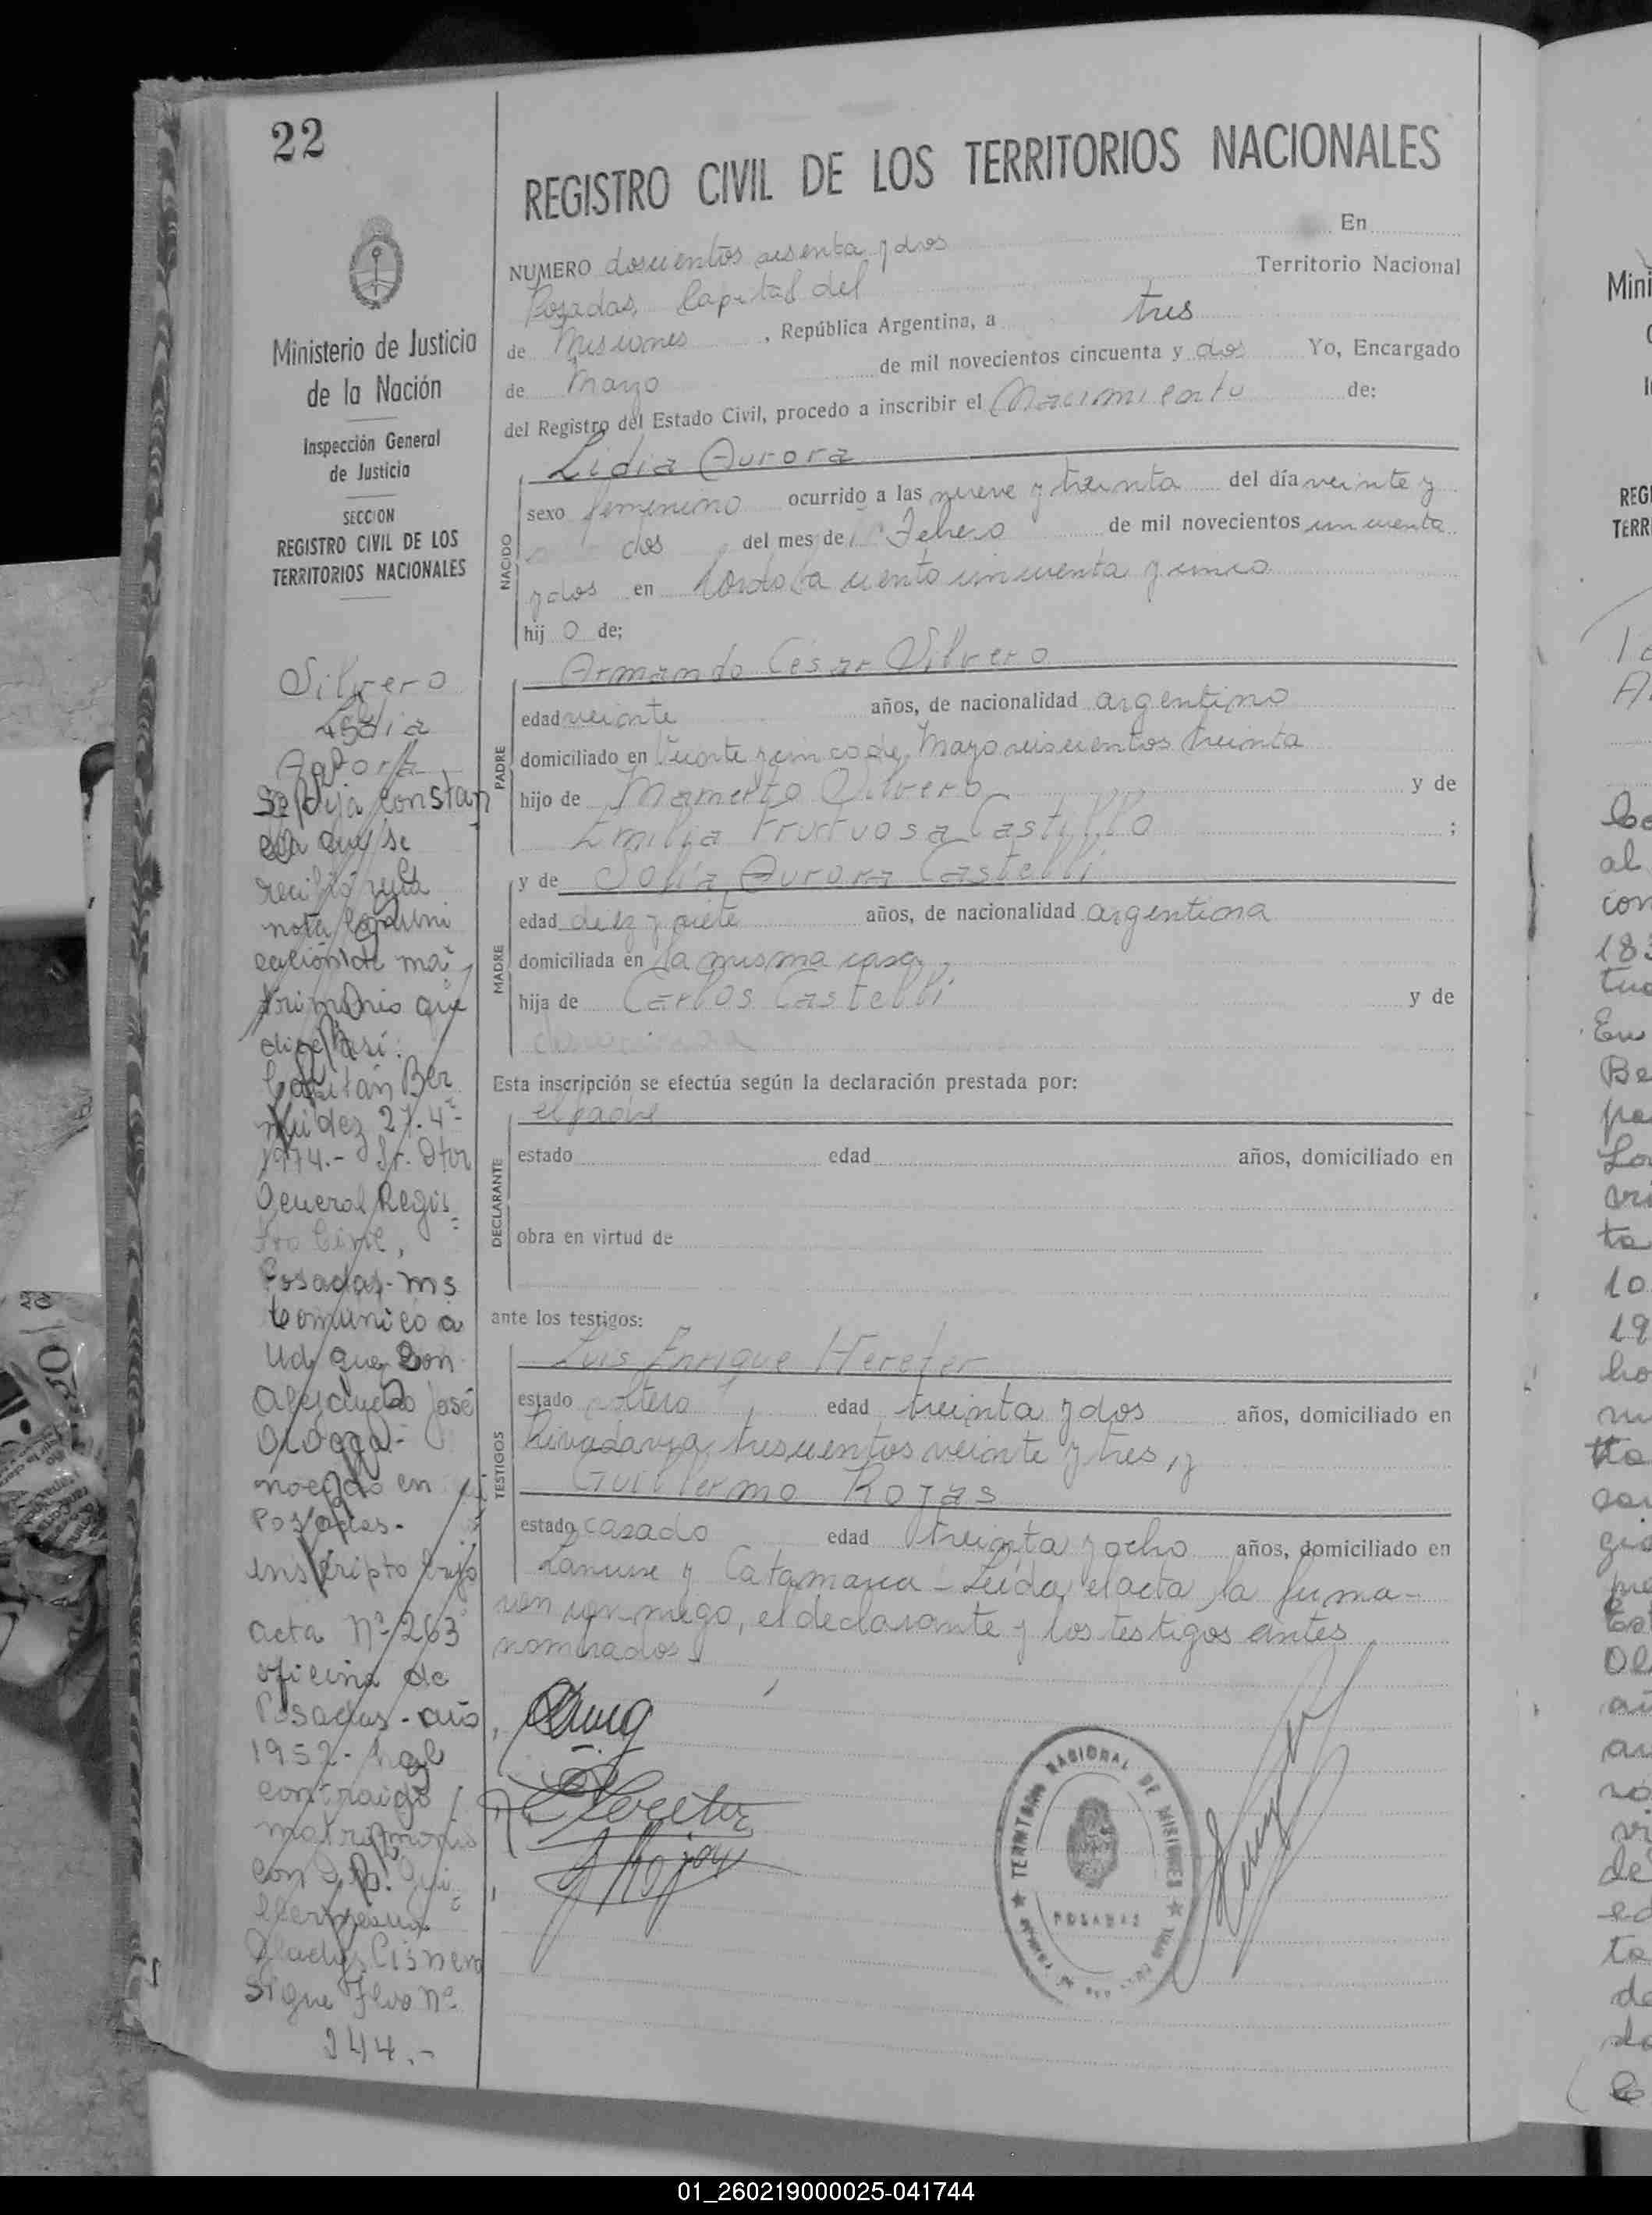 22
Ministerio de Justicia
de la Nación
Inspección General
de Justicia
SECCION
REGISTRO CIVIL DE LOS
TERRITORIOS NACIONALES
Silvero
Lidia
Aurora
Se deja constan
cia que se
recibió una
nota comuni
cación de ma
trimonio que
dice así:
Capitán Ber
múdez 27.4-
1974.- Sr. Dtor
General Regis
tro Civil,
Posadas-Ms
Comunico a
Ud que Don
Alejandro José
nacido en
Posadas-
inscripto bajo
acta Nº 263
oficina de
Posadas-año
1952- ha
contraido
matrimonio
con
Gladys Cisnero
Sigue Flio nº
244.-
REGISTRO CIVIL DE LOS TERRITORIOS NACIONALES
NUMERO doscientos sesenta y dos En
Posadas, Capital del Territorio Nacional
de Misiones, República Argentina, a tres
de Mayo de mil novecientos cincuenta y dos Yo, Encargado
del Registro del Estado Civil, procedo a inscribir el Nacimiento de:
NACIDO
Lidia Aurora
sexo femenino ocurrido a las nueve y treinta del día veinte y
dos del mes de Febrero de mil novecientos cincuenta
y dos en Córdoba ciento cincuenta y cinco
hij o de;
PADRE
Armando César Silvero
edad veinte años, de nacionalidad argentino
domiciliado en Veinte y cinco de Mayo seiscientos treinta
hijo de Mamerto Silvero y de
Emilia Fructuosa Castillo ;
MADRE
y de Sofía Aurora Castelli
edad diez y siete años, de nacionalidad argentina
domiciliada en la misma casa,
hija de Carlos Castelli y de
Esta inscripción se efectúa según la declaración prestada por:
DECLARANTE
el padre
estado edad años, domiciliado en
obra en virtud de
ante los testigos:
TESTIGOS
Luis Enrique Hereter
estado soltero edad treinta y dos años, domiciliado en
Rivadavia trescientos veinte y tres, y
Guillermo Rojas
estado casado edad treinta y ocho años, domiciliado en
Lanusse y Catamarca - Leída el acta la firma-
ron conmigo, el declarante y los testigos antes
nombrados
TERRITORIO NACIONAL DE MISIONES
POSADAS
Mini
REG
TERR
al
con
183
tud
En
Be
ta
10
19
de
ta
01_260219000025-041744